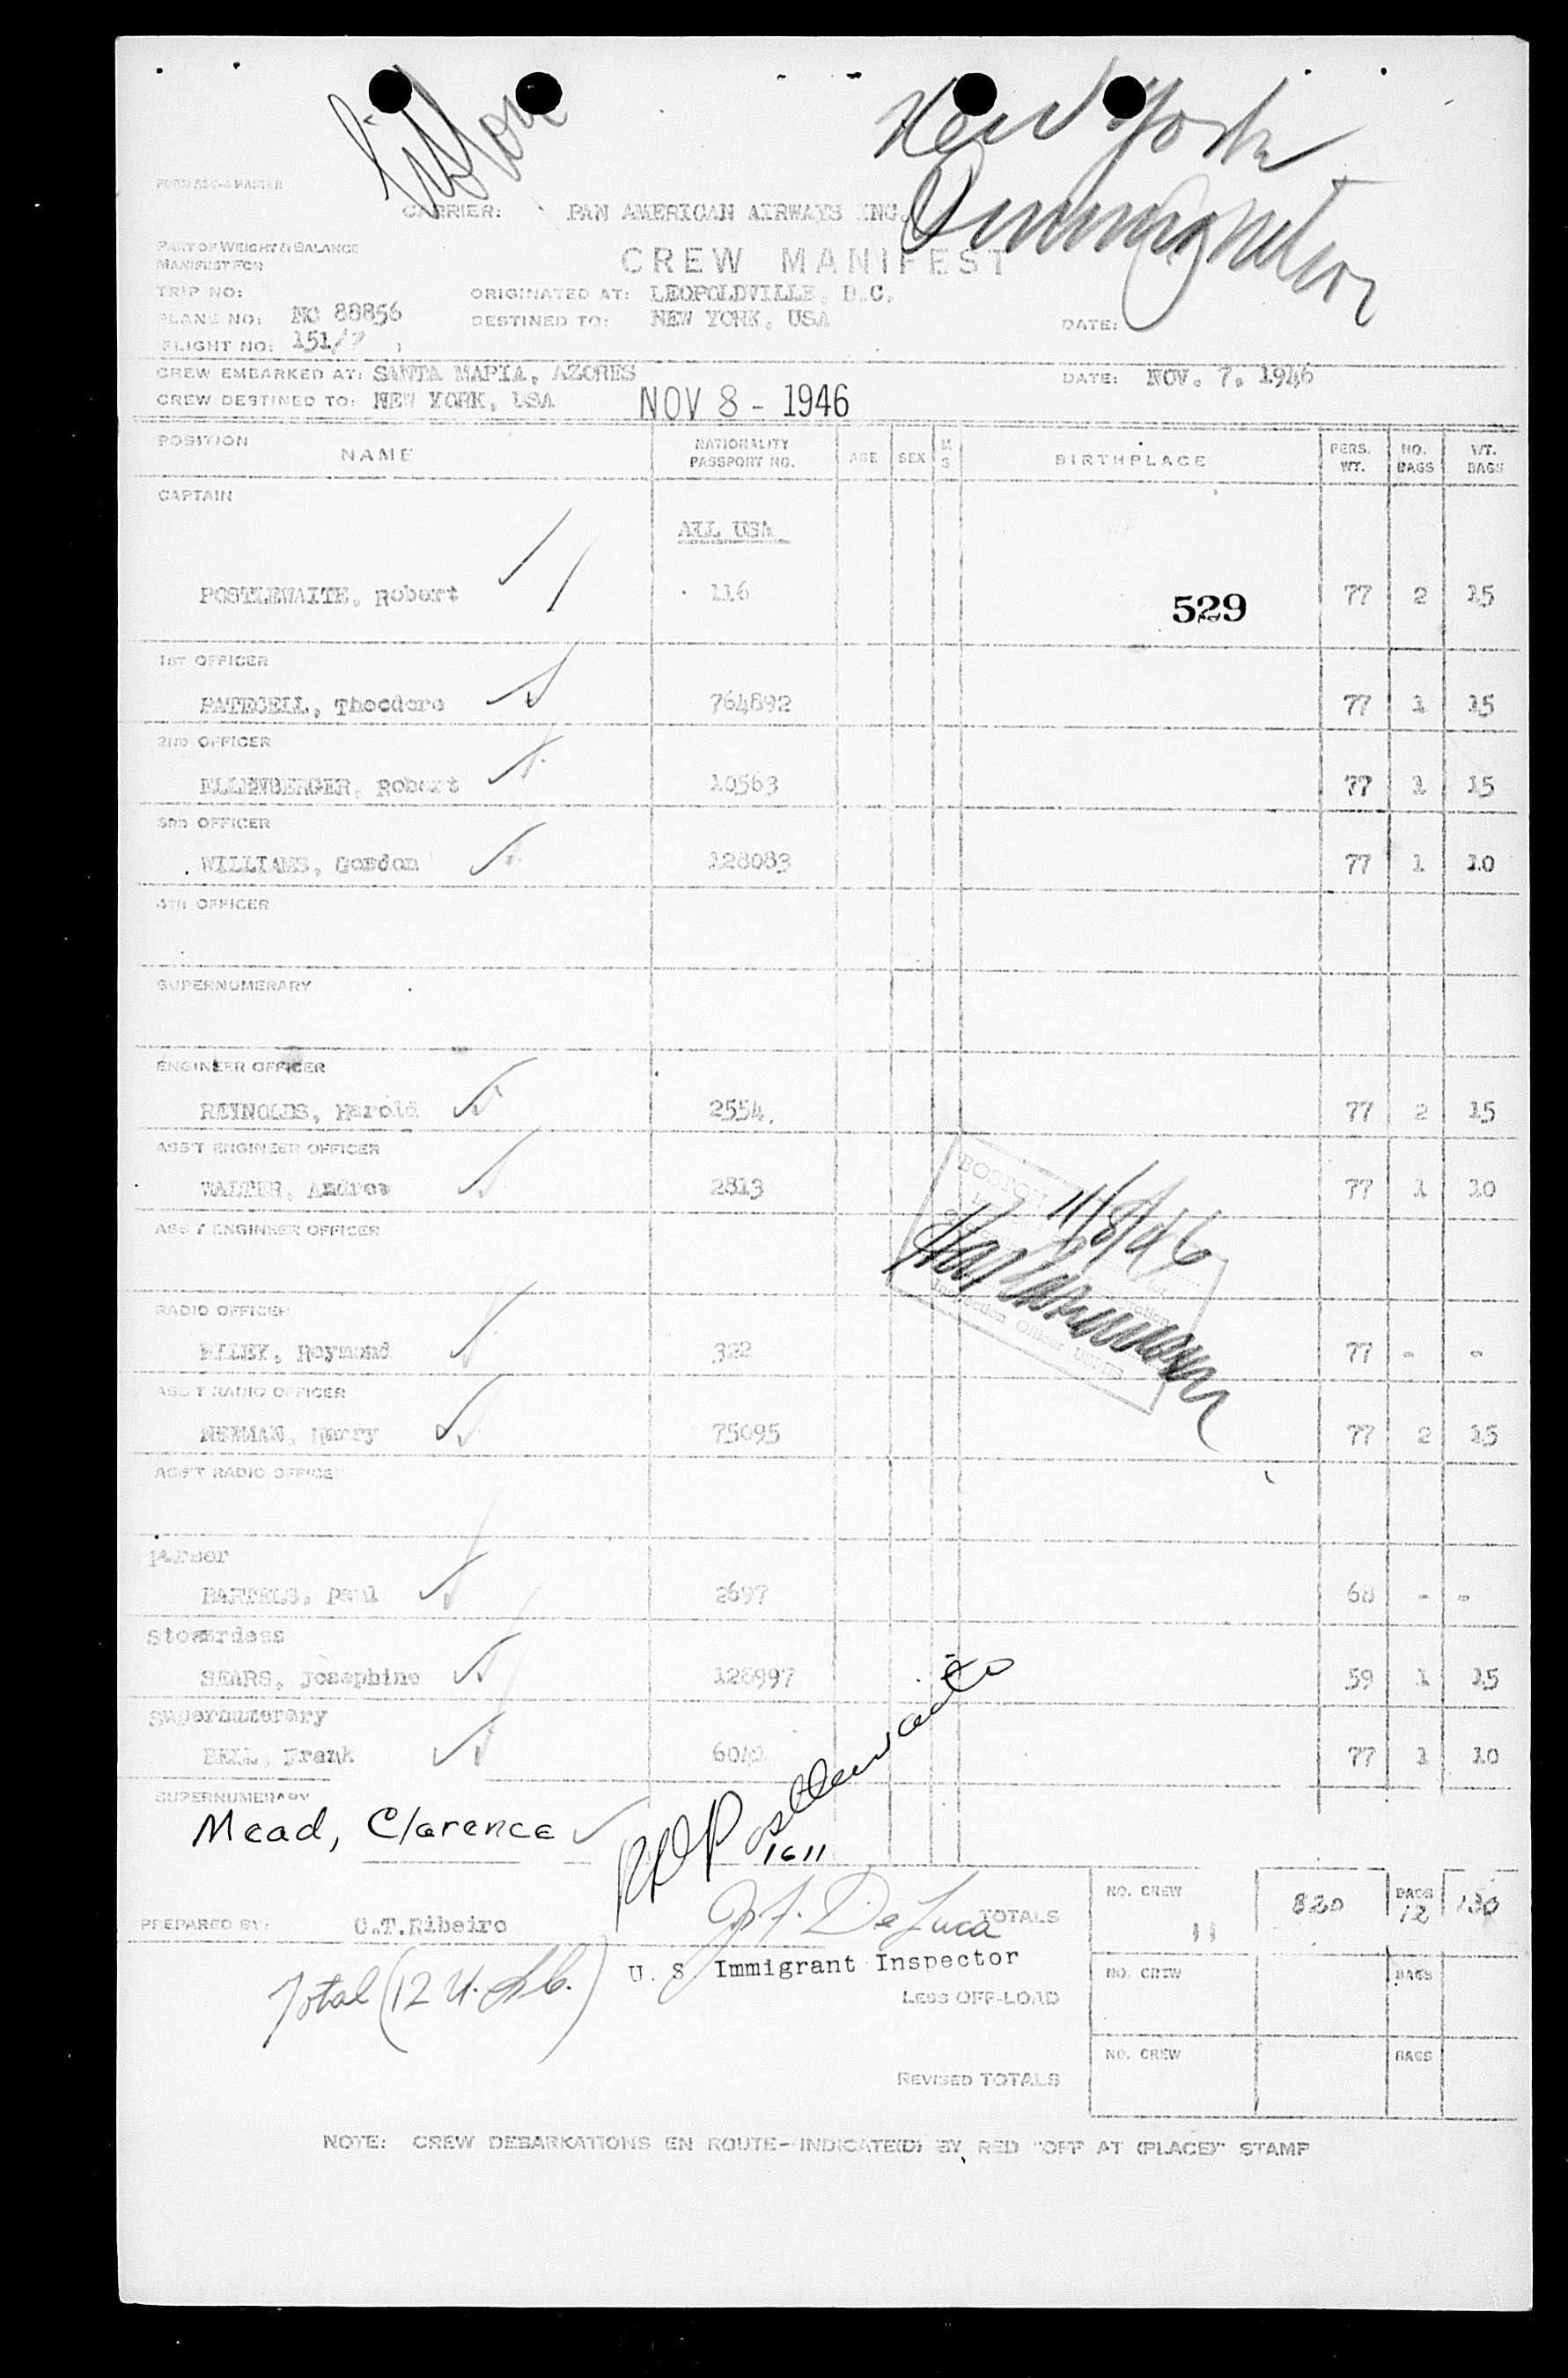 Lisbon
New York
Immigration
FORM ASC-4 MASTER
CARRIER: PAN AMERICAN AIRWAYS INC.
PART OF WEIGHT & BALANCE
MANIFEST FOR
CREW MANIFEST
TRIP NO: ORIGINATED AT: LEOPOLDVILLE, B.C.
PLANE NO: NC 88856 DESTINED TO: NEW YORK, USA DATE:
FLIGHT NO: 151/7
CREW EMBARKED AT: SANTA MARIA, AZORES DATE: NOV. 7. 1946
CREW DESTINED TO: NEW YORK, USA NOV 8 - 1946
POSITION NAME NATIONALITY PASSPORT NO. AGE SEX M S BIRTHPLACE PERS. WT. NO. BAGS WT. BAGS
CAPTAIN
ALL USA
POSTLEWAITE, Robert 116 529 77 2 15
1ST OFFICER
PATECELL, Theodore 764892 77 1 15
2ND OFFICER
ELLENBERGER, Robert 10563 77 1 15
3RD OFFICER
WILLIAMS, Gordon 128083 77 1 10
4TH OFFICER
SUPERNUMERARY
ENGINEER OFFICER
REYNOLDS, Harold 2554. 77 2 15
ASS'T ENGINEER OFFICER
WALTER, Andrew 2813 77 1 10
BOSTON
11/8/46
ASS'T ENGINEER OFFICER
Inspection Officer USPHS
RADIO OFFICER
Raymond 322 77 - -
ASS'T RADIO OFFICER
NEWMAN, Harry 75095 77 2 15
ASS'T RADIO OFFICER
Purser
BARTELS, Paul 2697 68 - -
Stewardess
SEARS, Josephine 128997 59 1 15
Supernumerary
BELL, Frank 6041 77 1 10
SUPERNUMERARY
Mead, Clarence 1611
RD Postlewaite
NO. CREW 11 820 BAGS 12 130
PREPARED BY: C.T.Ribeiro TOTALS
J. F. DeLuca
U. S. Immigrant Inspector
Total (12 U.S.C.)
NO. CREW BAGS
LESS OFF-LOAD
NO. CREW BAGS
REVISED TOTALS
NOTE: CREW DEBARKATIONS EN ROUTE-INDICATE(D) BY RED "OFF AT (PLACE)" STAMP